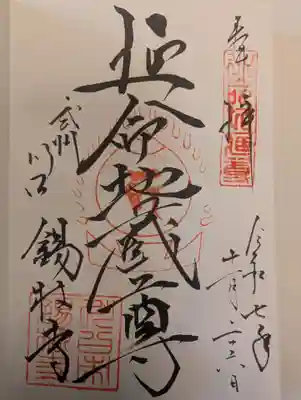 奉拝
令和七年
十一月二十六日
延命地蔵尊
武州川口
錫杖寺